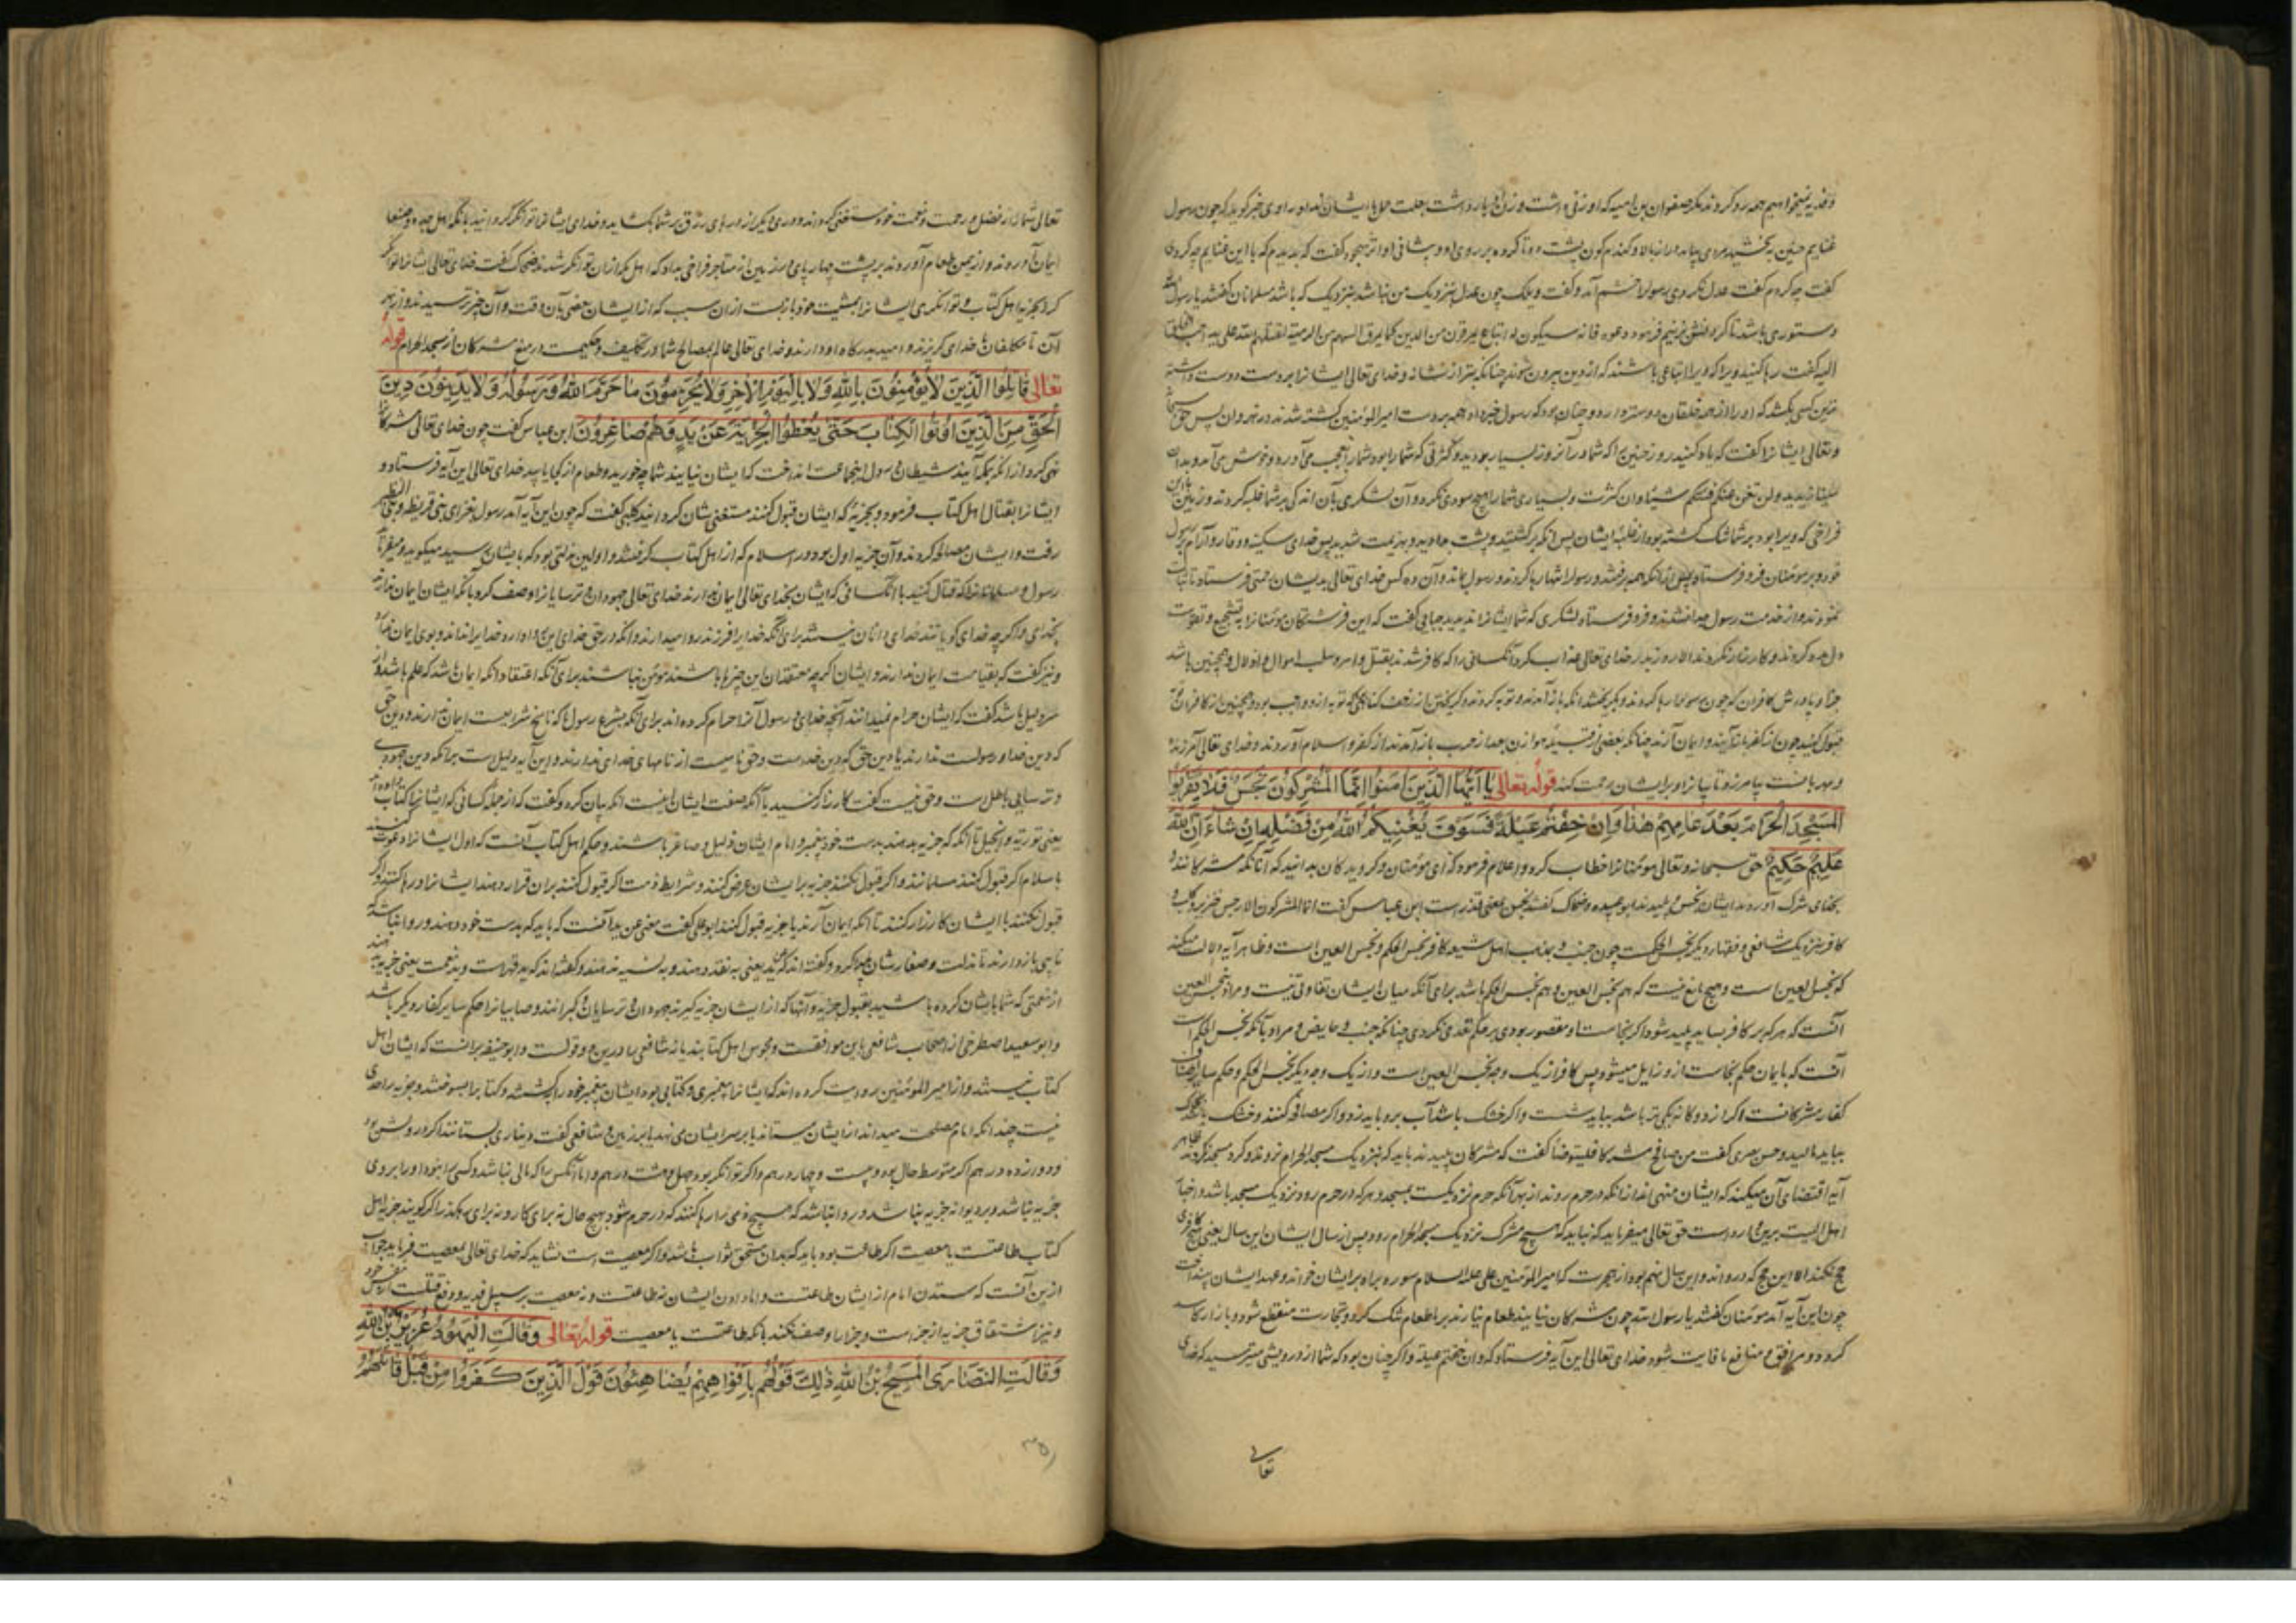 وفدیه نمیخواهیم همه رد کردند مگر صفوان بن امیه که او زنی داشت و زن را بار داشت بعلت حمل با ایشان نداد و راوی خبر گوید که چون رسول
غنایم حنین بخشید مردی بیامد دراز بالا و گندم گون پشت دوتا کرده بر روی او و پیشانی او اثر سجود گفت که بدیدم که با این غنایم چه کردی
گفت چه کردم گفت عدل نکردی رسول را خشم آمد و گفت ویلک چون عدل بنزدیک من نباشد بنزدیک که باشد مسلمانان گفتند یا رسول الله
دستوری باشد تا گردنش بزنیم فرمود دعوه فانه سیکون له اتباع یمرقون من الدین کما یمرق السهم من الرمیة یقتلهم الله علی ید احب الخلق
الیه گفت رها کنید ویرا که ویرا اتباعی باشند که از دین بیرون شوند چنانکه تیر از نشانه و خدای تعالی ایشانرا بر دست دوست داشته
ترین کسی بکشد که او را از همه خلقان دوستر دارد و چنان بود که رسول خبر داد همه بر دست امیر المؤمنین کشته شدند در نهروان پس حق سبحانه
وتعالی ایشانرا گفت که یاد کنید روز حنین را که شما در آنروز بسیار بودید و کثرتی که شما را بود شما را بعجب می آورد و خوش می آمد و بدان
فلن تغن عنکم شیئا و آن کثرت و بسیاری شما را هیچ سودی نکرد و آن لشکری بآن اندکی بر شما غلبه کردند و زمین با این
فراخی که ویرا بود بر شما تنگ گشته بود از غلبه ایشان پس آنکه برگشتید و پشت بدادید و بهزیمت شدید پس خدای سکینه و وقار و آرام بر رسول
خود و بر مؤمنان فرو فرستاد پس از آنکه همه برفتند و رسول را تنها رها کردند و رسول بماند و آن ده کس خدای تعالی بدیشان رحمتی فرستاد تا ثبات
نمودند و از خدمت رسول جدا نشدند و فرو فرستاد لشکری که شما ایشانرا ندیدید جبایی گفت که این فرشتگان مؤمنانرا تشجیع و تقویت
دل میکردند و کارزار نکردند الا روز بدر خدای تعالی عذاب کرد آنکسانی را که کافر شدند بقتل و اسر و سلب اموال و اذلال و همچنین باشد
جزا و پاداش کافران که چون رسول را رها کردند و بگریختند آنکه باز آمدند و توبه کردند
قبول کنید چون از کفر باز آیند و ایمان آرند چنانکه بعضی از قبیله هوازن بعد از حرب باز آمدند از کفر و اسلام آوردند و خدای تعالی آمرزنده
و مهربانست بیامرزد تائبانرا و بر ایشان رحمت کند قوله تعالی یا ایها الذین امنوا انما المشرکون نجس فلا یقربوا
المسجد الحرام بعد عامهم هذا و ان خفتم عیلة فسوف یغنیکم الله من فضله ان شاء ان الله
علیم حکیم حق سبحانه وتعالی مؤمنانرا خطاب کرد و اعلام فرمود که ای مؤمنان و گرویدگان بدانید که آنانکه مشرکانند و
بخدای شرک آوردند ایشان نجس و پلیدند ابو عبیده و ضحاک گفتند نجس بمعنی قذر است ابن عباس گفت انما المشرکون الا رجس خنزیر و کلب و
کافر بنزدیک شافعی و فقهاء دیگر نجس الحکمست چون جنب و بمذهب اهل شیعه کافر نجس الحکم و نجس العین است و ظاهر آیه دلالت میکند
که نجس العین است و هیچ مانع نیست که هم نجس العین و هم نجس الحکم باشد برای آنکه میان ایشان تفاوتی نیست و مراد بنجس العین
آنست که هر که بر کافر بساید پلید شود اگر نجاست او مقصور بودی بر حکم تعدی نکردی چنانکه جنب و حایض و مراد بآنکه نجس الحکم است
آنست که بایمان حکم نجاست ازو زایل میشود پس کافر از یک وجه نجس العین است و از یک وجه دیگر نجس الحکم و حکم سایر اصناف
کفار مشرکانست اگر از دو گانه یکی تر باشد بباید شست و اگر خشک باشد آب برو باید زد و اگر مصافحه کنند و خشک باشد بخاک
بباید مالید و حسن بصری گفت من صافح مشرکا فلیتوضأ گفت که مشرکان پلیدند باید که بنزدیک مسجد الحرام نروند و گرد مسجد نگردند ظاهر
آیه اقتضای آن میکند که ایشان منهی اند از آنکه در حرم روند از بهر آنکه حرم نزدیکست بمسجد و هر که در حرم رود نزدیک مسجد باشد و اخبار
اهل البیت برین وارد است حق تعالی میفرماید که نباید که هیچ مشرک نزدیک مسجد الحرام رود پس از سال ایشان این سال یعنی هیچ کافری
حج نکند الا این حج که درو اند و این سال نهم بود از هجرت که امیر المؤمنین علی علیه السلام سوره براءه بر ایشان خواند و عهد ایشان بینداخت
چون این آیه آمد مؤمنان گفتند یا رسول الله چون مشرکان نیایند طعام نیارند بر ما طعام تنگ گردد و تجارت منقطع شود و بازار کاسد
گردد و مرافق و منافع ما فایت شود خدای تعالی این آیه فرستاد که و ان خفتم عیلة و اگر چنان بود که شما از درویشی میترسید که خدای
تعالی
تعالی شما را از فضل و رحمت و نعمت خود مستغنی گرداند و دری دیگر از درهای رزق بر شما بگشاید و خدای ایشانرا توانگر گردانید بآنکه اهل جده و صنعا
ایمان آوردند و از یمن طعام آوردند بر پشت چهارپای و زمین از متاجر فراخی بداد که اهل مکه ازان توانگر شدند ضحاک گفت خدای تعالی ایشانرا توانگر
کرد بجزیه اهل کتاب و توانگری ایشانرا بمشیت خود باز بست ازان سبب که از ایشان بعضی بآن وقت و آن چیز نرسیدند و از بهر
آن تا مکلفان با خدای گریزند و امید بدرگاه او دارند و خدای تعالی عالم بمصالح شما و در تکلیف و حکیمست در منع مشرکان از مسجد الحرام قوله
تعالی قاتلوا الذین لا یؤمنون بالله و لا بالیوم الاخر و لا یحرمون ما حرم الله و رسوله و لا یدینون دین
الحق من الذین اوتوا الکتاب حتی یعطوا الجزیة عن ید و هم صاغرون ابن عباس گفت چون خدای تعالی مشرکانرا
نهی کرد از آنکه بمکه آیند شیطان وسوسه در جماعت انداخت که ایشان نیایند شما چه خورید و طعام از کجا یابید خدای تعالی این آیه فرستاد و
ایشانرا بقتال اهل کتاب فرمود و بجزیه که ایشان قبول کنند مستغنی شان گردانید کلبی گفت که چون این آیه آمد رسول بغزای بنی قریظه و بنی النظیر
رفت و ایشان مصالحه کردند و آن جزیه اول بود در اسلام که از اهل کتاب گرفتند و اولین مذلتی بود که بایشان رسید میگوید و میفرماید
رسول و مسلمانانرا که قتال کنید با آنکسانی که ایشان بخدای تعالی ایمان ندارند خدای تعالی جهودان و ترسایانرا وصف کرد بآنکه ایشان ایمان ندارند
بخدای و اگر چه خدای گویانند خدای دانان نیستند برای آنکه خدا را فرزند روا میدارند و آنکه در حق خدای این روا دارد خدا را نداند و بوی ایمان ندارد
و نیز گفت که بقیامت ایمان ندارند و ایشان اگر چه معتقدان این چیزها باشند مؤمن نباشند برای آنکه اعتقاد آنکه ایمان باشد که علم باشد و از
سر دلیل باشد گفت که ایشان حرام نمیدانند آنچه خدای و رسول آنرا حرام کرده اند برای آنکه بشرع رسول ما که ناسخ شرایعست ایمان ندارند و دین حق
که دین خدا و رسولست ندارند یا دین حق که دین خداست و حق نامیست از نامهای خدای ندارند و این آیه دلیل است بر آنکه دین جهودی
و ترسایی باطل است و حق نیست گفت کارزار کنید با آنکه صفت ایشان اینست آنکه بیان کرد و گفت که از جمله کسانی که ایشانرا کتاب داده اند
یعنی توریة و انجیل تا آنکه که جزیه بدهند بدست خود پیغمبر و امام ایشان ذلیل و صاغر باشند و حکم اهل کتاب آنست که اول ایشانرا دعوت کنند
باسلام اگر قبول کنند مسلمانند و اگر قبول نکنند جزیه بر ایشان عرض کنند و شرایط ذمت اگر قبول کنند بران قرار دهند ایشانرا و رها کنند و اگر
قبول نکنند با ایشان کارزار کنند تا آنکه ایمان آرند یا جزیه قبول کنند ابو علی گفت معنی عن ید آنست که باید که بدست خود دهند و روا نباشد که
نایبی باز دارند تا مذلت و صغار شان پیدا گردد و گفته اند که عن ید یعنی به نقد دهند و به نسیه ندهند و گفته اند که ید قدرتست و ید نعمت یعنی جزیه دهند
از نعمتی که شما بایشان کرده باشید بقبول جزیه و آنها که از ایشان جزیه گیرند جهودان و ترسایان و گبرانند و صابیانرا حکم سایر کفار دیگر باشد
و ابو سعید اصطرخی از اصحاب شافعی باین موافقست و مجوس اهل کتابند یا نه شافعی را درین دو قولست و ابو حنیفه برآنست که ایشان اهل
کتاب نیستند و از امیر المؤمنین روایت کرده اند که ایشانرا پیغمبری و کتابی بود ایشان پیغمبر خود را بکشتند و کتاب را بسوختند و جزیه را حدی
نیست چندانکه امام مصلحت میداند از ایشان میستاند یا بر سر ایشان می نهد یا بر زمین و شافعی گفت دیناری بستانند اگر درویش بود
و دوازده درهم اگر متوسط حال بود و بیست و چهار درهم و اگر توانگر بود چهل و هشت درهم و اما آنکس را که مالی نباشد و کسبی نبود او را بر وی
جزیه نباشد و بر دیوانه جزیه نباشد و روا نباشد که هیچ ذمی را رها کنند که در حرم شود بهیچ حال نه برای کار و نه برای رهگذر اگر گویند جزیه اهل
کتاب طاعتست یا معصیت اگر طاعت بود باید که بدان مستحق ثواب باشد و اگر معصیت است نشاید که خدای تعالی بمعصیت فرماید جواب
ازین آنست که ستدن امام از ایشان طاعتست و اما دادن ایشان نه طاعتست و نه معصیت بر سبیل فدیه و دفع قتلست از نفس خود
و نیز اشتقاق جزیه از جزاست و جزا را وصف نکنند بآنکه طاعتست یا معصیت قوله تعالی و قالت الیهود عزیر بن الله
و قالت النصاری المسیح بن الله ذلک قولهم بافواههم یضاهئون قول الذین کفروا من قبل قاتلهم